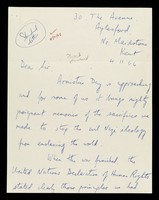 30, The Avenue
Aylesford
Nr Maidstone
Kent
Dear Sir,
Armistice Day is approaching
and for some of us it brings nightly
poignant memories of the sacrifices we
made to stop the evil Nazi ideology
from enslaving the world.
When the war finished, the
United Nations Declaration of Human Rights
stated clearly those principles we had